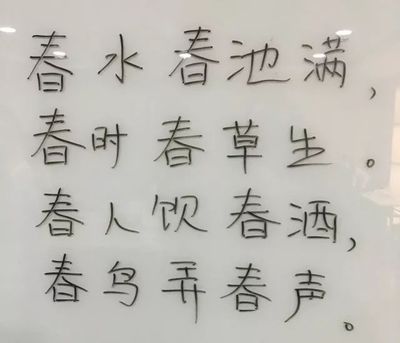 春水春池满，
春时春草生。
春人饮春酒，
春鸟弄春声。